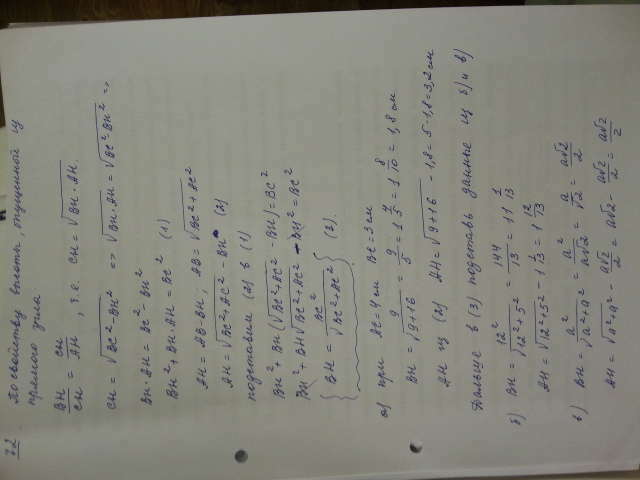 72 По свойству высоты, опущенной из
прямого угла
BH/CH = CH/AH, т.е. CH = √(BH·AH)
CH = √(BC²-BH²) => √(BH·AH) = √(BC²-BH²) =>
BH·AH = BC² - BH²
BH² + BH·AH = BC² (1)
AH = AB-BH; AB = √(BC²+AC²)
AH = √(BC²+AC²) - BH (2)
подставим (2) в (1)
BH² + BH(√(BC²+AC²) - BH) = BC²
BH² + BH√(BC²+AC²) - BH² = BC²
BH = BC²/√(BC²+AC²) (3).
а) при AC=4см BC=3см
BH = 9/√(9+16) = 9/5 = 1 4/5 = 1 8/10 = 1,8 см
AH из (2) AH = √(9+16) - 1,8 = 5-1,8 = 3,2 см
Дальше в (3) подставь данные из б) и в)
б) BH = 12²/√(12²+5²) = 144/13 = 11 1/13
AH = √(12²+5²) - 11 1/13 = 1 12/13
в) BH = a²/√(a²+a²) = a²/a√2 = a/√2 = a√2/2
AH = √(a²+a²) - a√2/2 = a√2 - a√2/2 = a√2/2